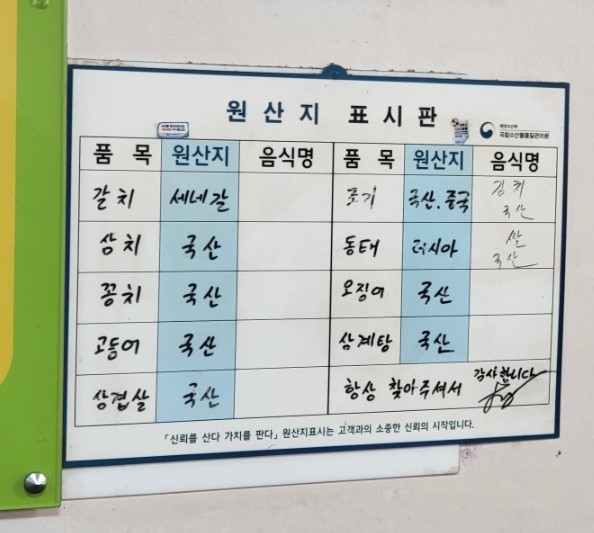 원산지 표시판
해양수산부
국립수산물품질관리원
품목 원산지 음식명 품목 원산지 음식명
갈치 세네갈 조기 국산, 중국 김치 국산
삼치 국산 동태 러시아 쌀 국산
꽁치 국산 오징어 국산
고등어 국산 삼계탕 국산
삼겹살 국산 항상 찾아주셔서 감사합니다
「신뢰를 산다 가치를 판다」 원산지표시는 고객과의 소중한 신뢰의 시작입니다.